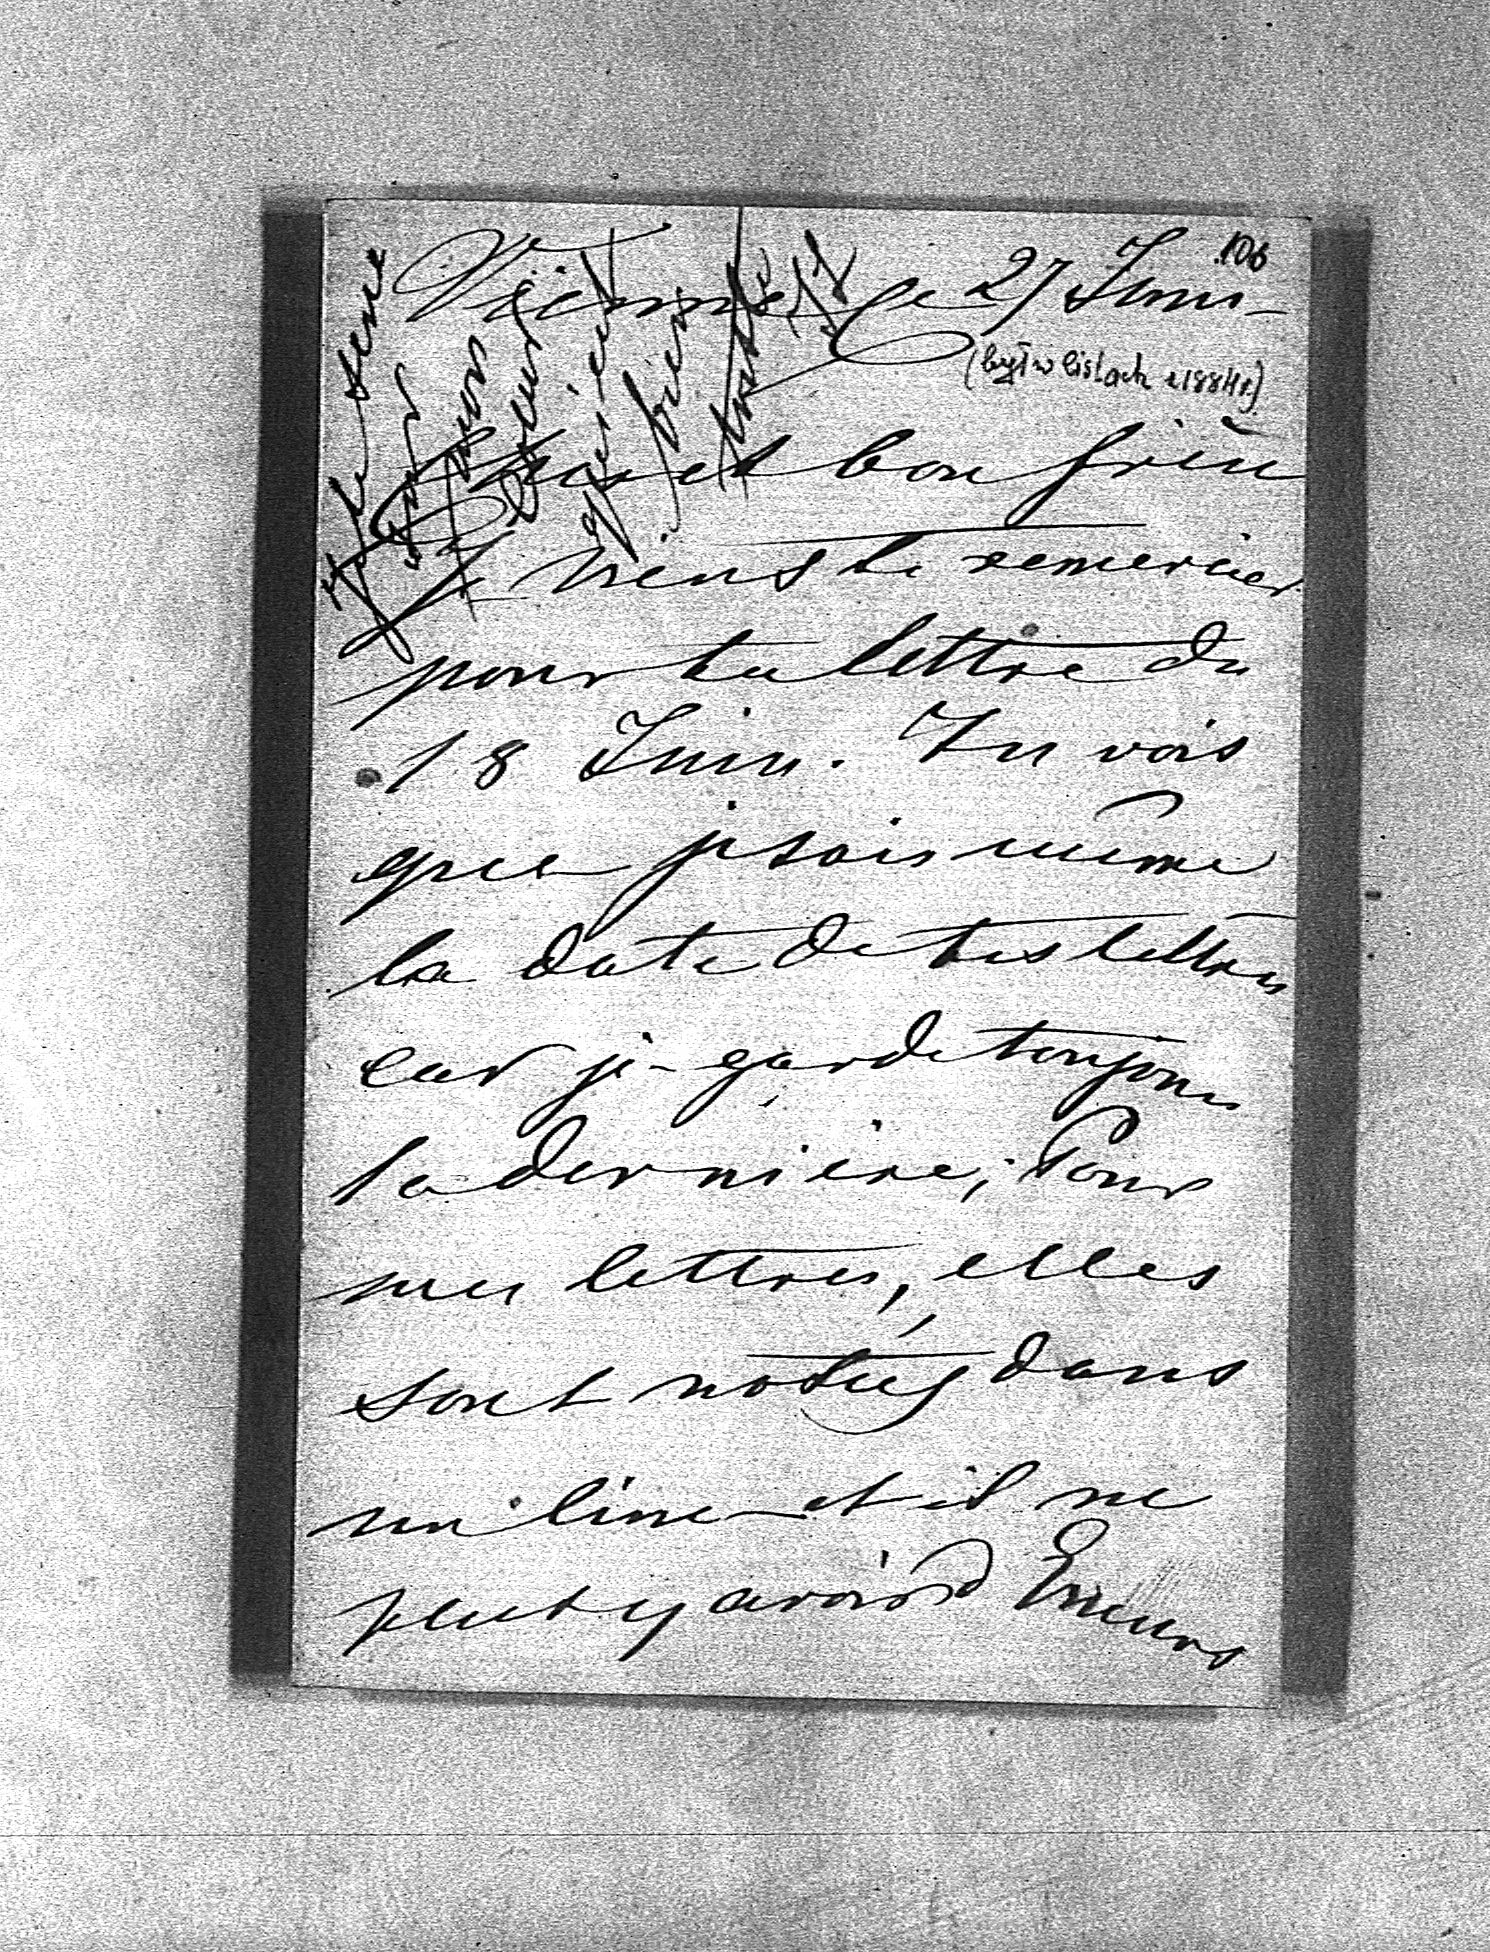 106
Vienne le 27 Juin
(był w listach z 1884 r.)
Cher et bon frère
Je viens te remercier
pour ta lettre du
18 Juin. Tu vois
que je sais même
la date de tes lettres
car je garde toujours
la dernière; Pour
mes lettres, elles
sont notées dans
un livre et il ne
peut y avoir d'Erreurs
Je te serre
sur mon
Coeur
bien